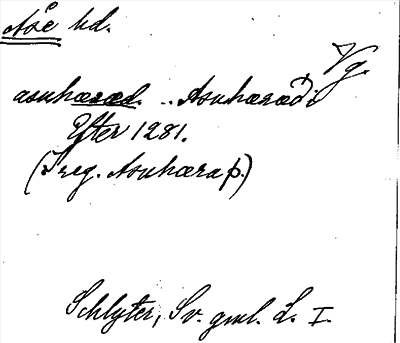 Åse hd.
Vg.
asuhæræd. .. Asuhæræđi
Efter 1281.
(I reg. Asuhæraþ.)
Schlyter, Sv. gml. L. I.